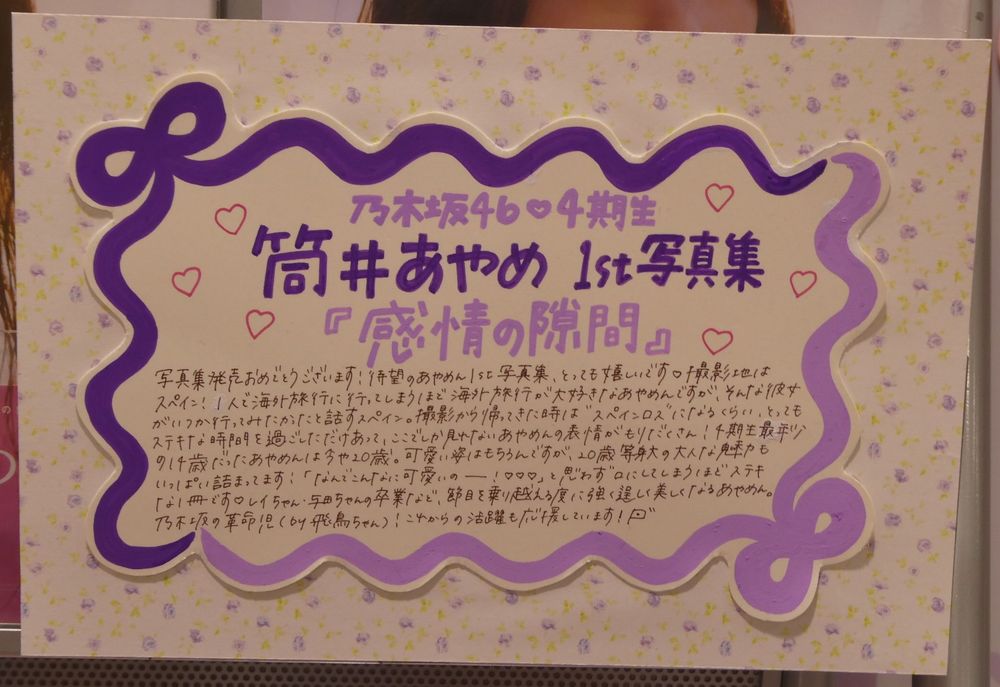 乃木坂46♡4期生
筒井あやめ 1st写真集
『感情の隙間』
写真集発売おめでとうございます!待望のあやめん1st写真集、とっても嬉しいです♡撮影地は
スペイン!1人で海外旅行に行ってしまうほど海外旅行が大好きなあやめんですが、そんな彼女
がいつか行ってみたかったと話すスペイン。撮影から帰ってきた時は"スペインロス"になるくらい、とっても
ステキな時間を過ごしただけあって、ここでしか見れないあやめんの表情がもりだくさん!4期生最年少
の14歳だったあやめんは今や20歳。可愛い姿はもちろんですが、20歳等身大の大人な魅力も
いっぱい詰まってます!「なんでこんなに可愛いのー!♡♡♡」と思わず口にしてしまうほどステキ
な1冊です♡レイちゃん・与田ちゃんの卒業など、節目を乗り越える度に強く逞しく美しくなるあやめん。
乃木坂の革命児(by飛鳥ちゃん)!これからの活躍も応援しています!